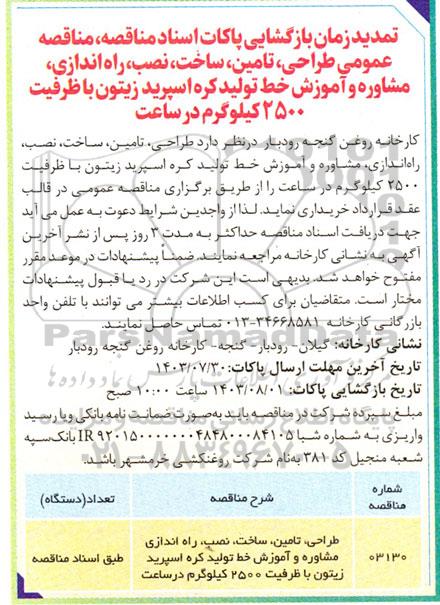 تمدید زمان بازگشایی پاکات اسناد مناقصه، مناقصه
عمومی طراحی، تامین، ساخت، نصب، راه اندازی،
مشاوره و آموزش خط تولید کره اسپرید زیتون با ظرفیت
۲۵۰۰ کیلوگرم در ساعت
کارخانه روغن گنجه رودبار درنظر دارد طراحی، تامین، ساخت، نصب،
راه‌اندازی، مشاوره و آموزش خط تولید کره اسپرید زیتون با ظرفیت
۲۵۰۰ کیلوگرم در ساعت را از طریق برگزاری مناقصه عمومی در قالب
عقد قرارداد خریداری نماید. لذا از واجدین شرایط دعوت به عمل می آید
جهت دریافت اسناد مناقصه حداکثر به مدت ۳ روز پس از نشر آخرین
آگهی به نشانی کارخانه مراجعه نمایند. ضمناً پیشنهادات در موعد مقرر
مفتوح خواهد شد. بدیهی است این شرکت در رد یا قبول پیشنهادات
مختار است. متقاضیان برای کسب اطلاعات بیشتر می توانند با تلفن واحد
بازرگانی کارخانه ۳۴۶۶۸۵۸۱-۰۱۳ تماس حاصل نمایند.
نشانی کارخانه: گیلان- رودبار- گنجه- کارخانه روغن گنجه رودبار
تاریخ آخرین مهلت ارسال پاکات: ۱۴۰۳/۰۷/۳۰
تاریخ بازگشایی پاکات: ۱۴۰۳/۰۸/۰۱ ساعت ۱۰:۰۰ صبح
مبلغ سپرده شرکت در مناقصه باید به‌صورت ضمانت نامه بانکی و یا رسید
واریزی به شماره شبا IR ۹۲۰۱۵۰۰۰۰۰۰۰۴۸۴۸۰۰۰۸۴۱۰۵ بانک سپه
شعبه منجیل کد ۳۸۱ به‌نام شرکت روغنکشی خرمشهر باشد.
شماره مناقصه شرح مناقصه تعداد(دستگاه)
۰۳۱۳۰ طراحی، تامین، ساخت، نصب، راه اندازی
مشاوره و آموزش خط تولید کره اسپرید
زیتون با ظرفیت ۲۵۰۰ کیلوگرم درساعت
طبق اسناد مناقصه